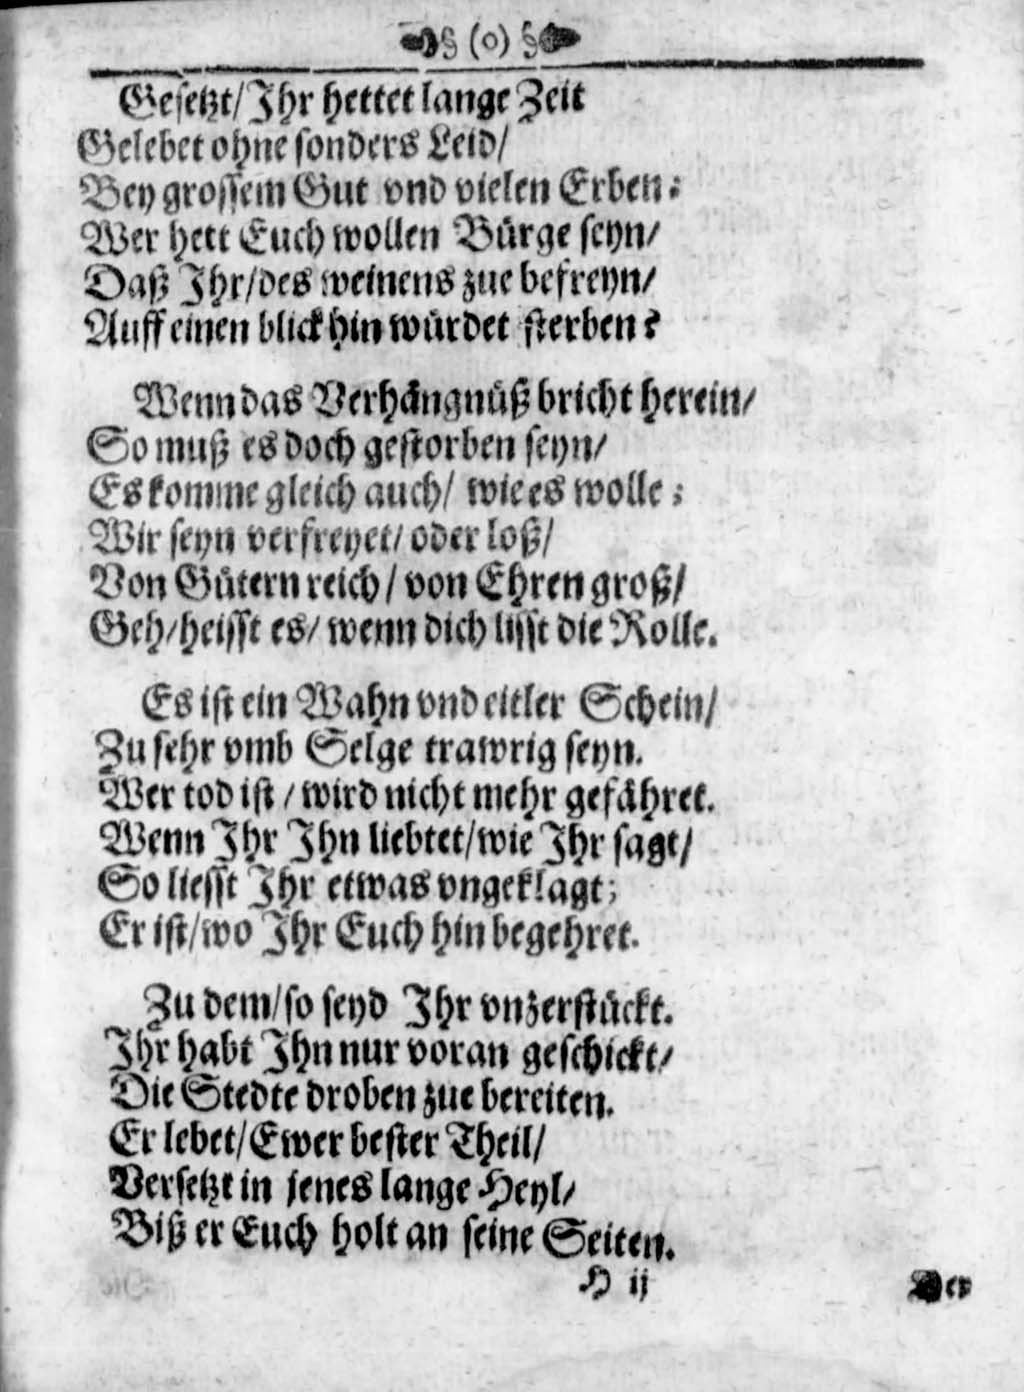 § (o) §
Gesetzt/ Ihr hettet lange Zeit
Gelebet ohne sonders Leid/
Bey grossem Gut vnd vielen Erben:
Wer hett Euch wollen Bürge seyn/
Daß Ihr/ des weinens zue befreyn/
Auff einen blick hin würdet sterben?
Wenn das Verhängnüß bricht herein/
So muß es doch gestorben seyn/
Es komme gleich auch/ wie es wolle:
Wir seyn verfreyet/ oder loß/
Von Gütern reich/ von Ehren groß/
Geh/ heisst es/ wenn dich lisst die Rolle.
Es ist ein Wahn vnd eitler Schein/
Zu sehr vmb Selge trawrig seyn.
Wer tod ist/ wird nicht mehr gefähret.
Wenn Ihr Ihn liebtet/ wie Ihr sagt/
So liesst Ihr etwas vngeklagt;
Er ist/ wo Ihr Euch hin begehret.
Zu dem/ so seyd Ihr vnzerstückt.
Ihr habt Ihn nur voran geschickt/
Die Stedte droben zue bereiten.
Er lebet/ Ewer bester Theil/
Versetzt in jenes lange Heyl/
Biß er Euch holt an seine Seiten.
H ij Der